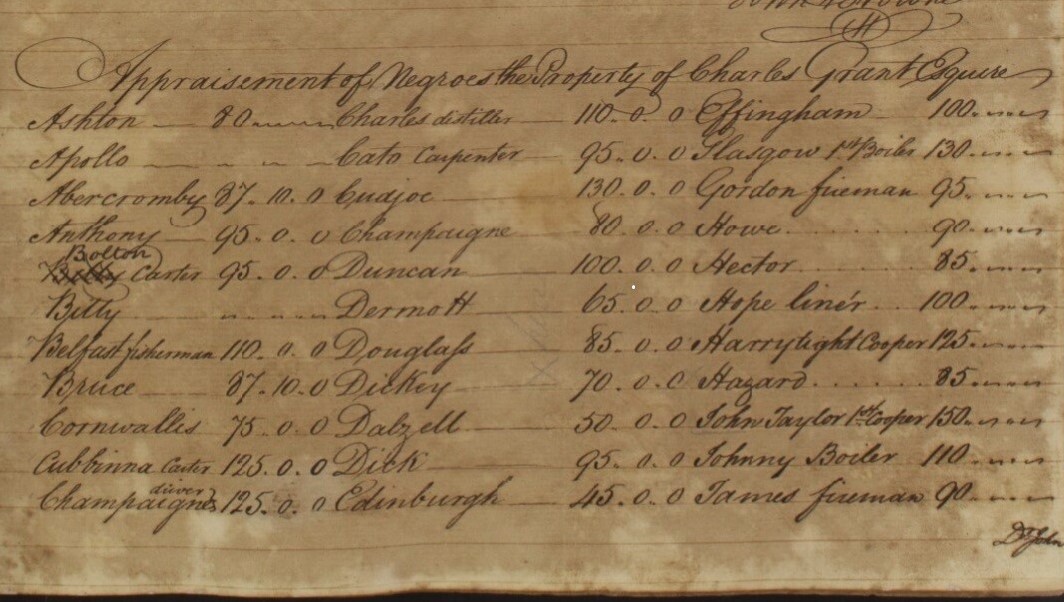 Appraisement of Negroes the Property of Charles Grant Esquire
Ashton 80 " " Charles distiller 110. 0. 0 Effingham 100. " "
Apollo " " " Cato Carpenter 95. 0. 0 Glasgow 1st Boiler 130. " "
Abercromby 87. 10. 0 Cudjoe 130. 0. 0 Gordon fireman 95. " "
Anthony 95. 0. 0 Champaigne 80. 0. 0 Howe 90. " "
Bolton
Billy Carter 95. 0. 0 Duncan 100. 0. 0 Hector 85. " "
Billy " " " Dermott 65. 0. 0 Hope liner 100. " "
Belfast fisherman 110. 0. 0 Douglass 85. 0. 0 Harry tight Cooper 125. " "
Bruce 87. 10. 0 Dickey 70. 0. 0 Hazard 85. " "
Cornwallis 75. 0. 0 Dalzell 50. 0. 0 John Taylor 1st Cooper 150. " "
Cubbinna Carter 125. 0. 0 Dick 95. 0. 0 Johnny Boiler 110. " "
driver
Champaigne 125. 0. 0 Edinburgh 45. 0. 0 James fireman 90. " "